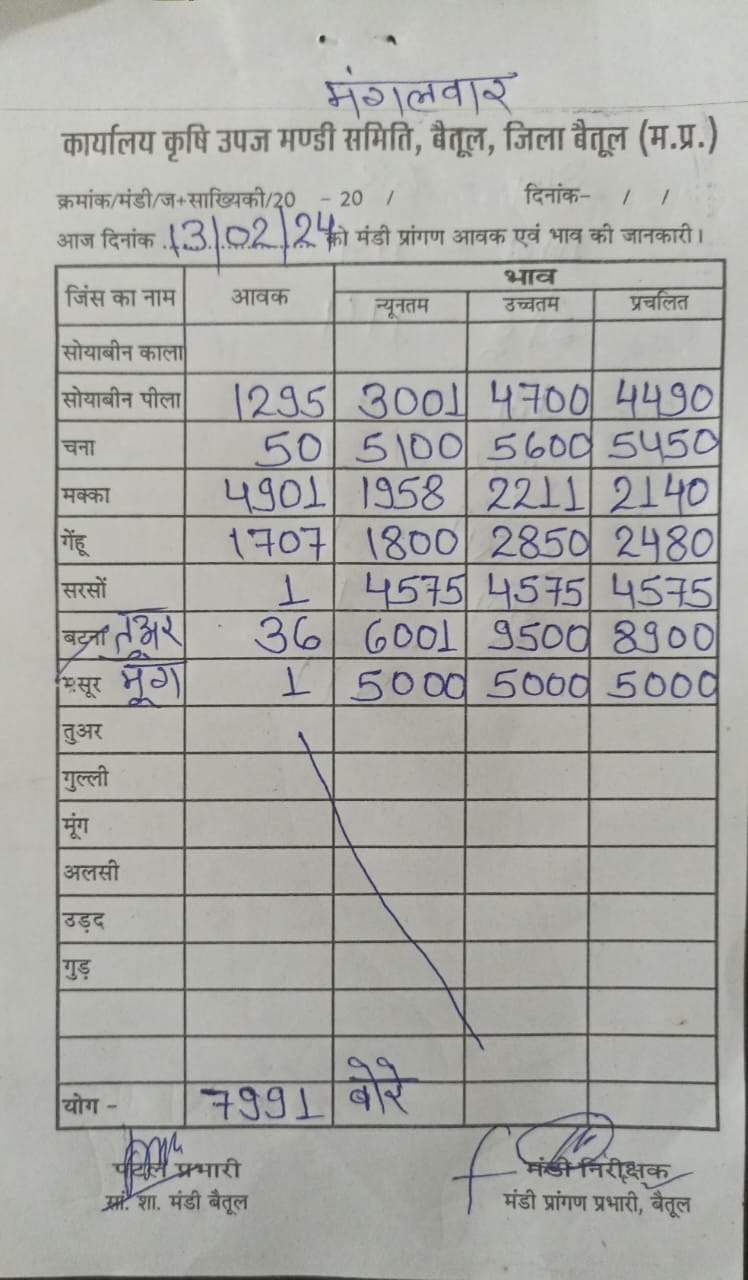 मंगलवार
कार्यालय कृषि उपज मण्डी समिति, बैतूल, जिला बैतूल (म.प्र.)
क्रमांक/मंडी/ज+साख्यिकी/20 - 20 / दिनांक- / /
आज दिनांक 13/02/24 को मंडी प्रांगण आवक एवं भाव की जानकारी।
जिंस का नाम आवक भाव
न्यूनतम उच्चतम प्रचलित
सोयाबीन काला
सोयाबीन पीला 1295 3001 4700 4490
चना 50 5100 5600 5450
मक्का 4901 1958 2211 2140
गेंहू 1707 1800 2850 2480
सरसों 1 4575 4575 4575
बटना तुअर 36 6001 9500 8900
मसूर मूंग 1 5000 5000 5000
तुअर
गुल्ली
मूंग
अलसी
उड़द
गुड़
योग - 7991 बोरे
प्रभारी मंडी निरीक्षक
सां. शा. मंडी बैतूल मंडी प्रांगण प्रभारी, बैतूल